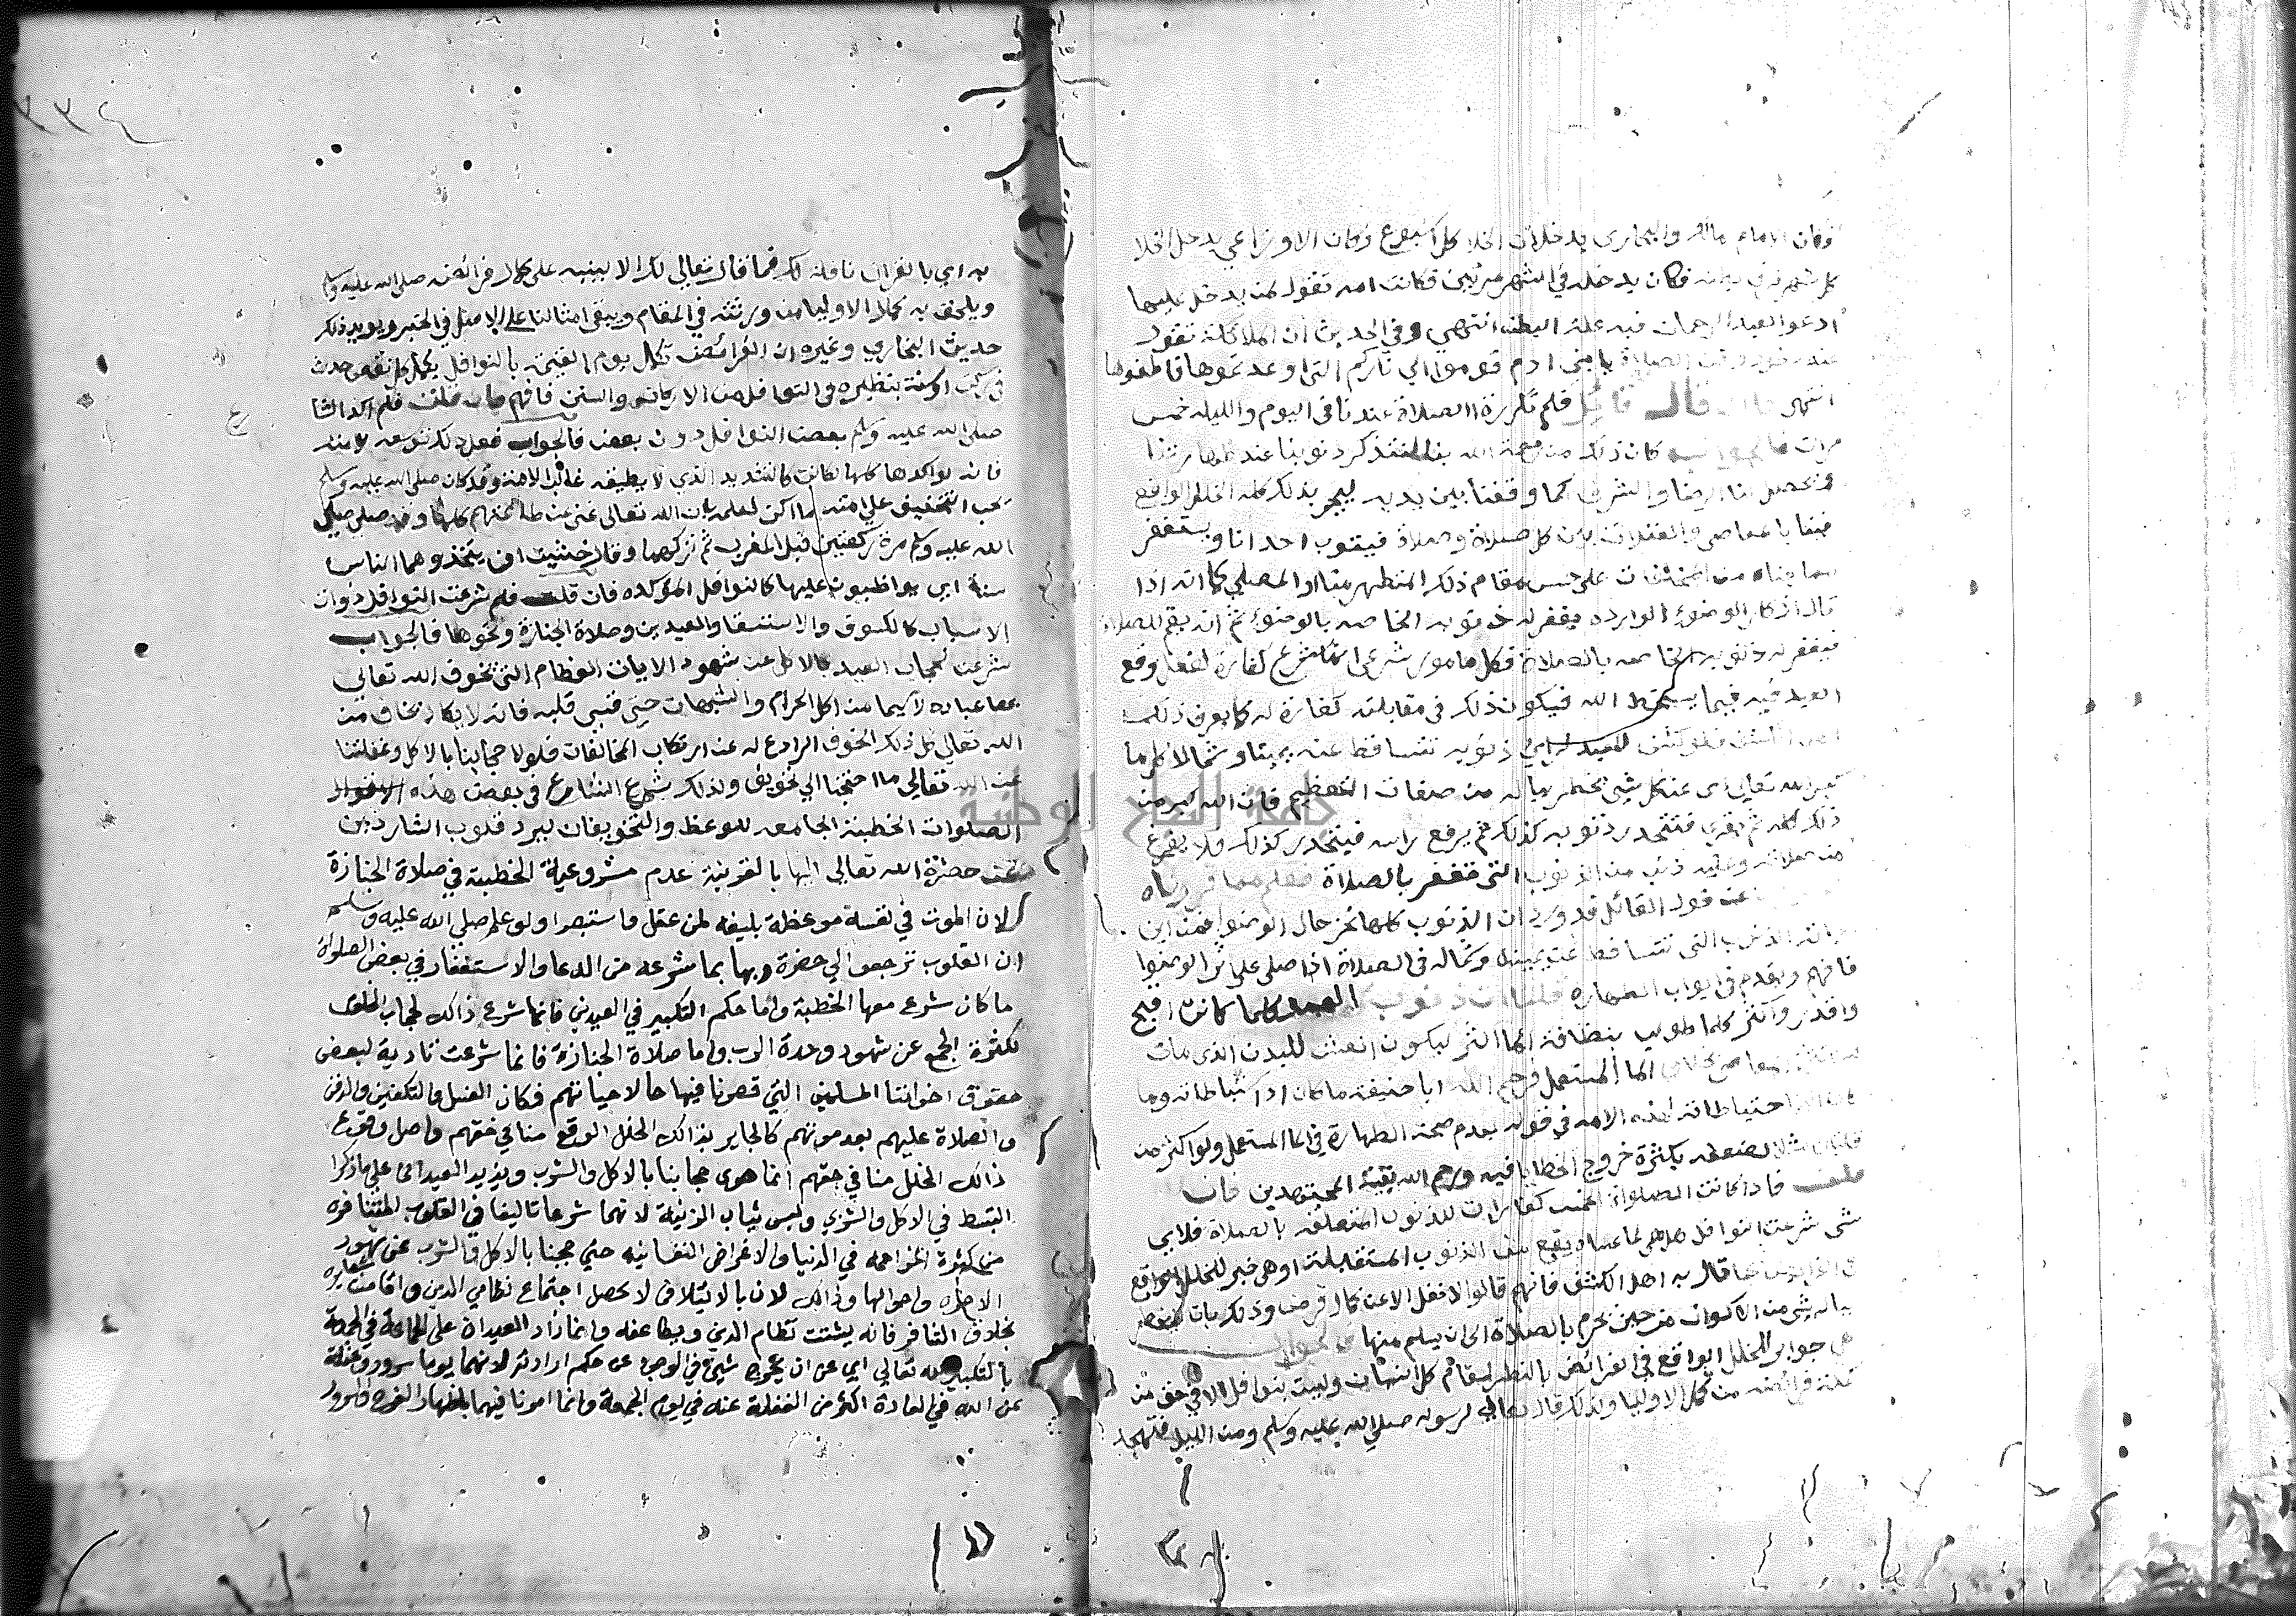 وكان الامام مالك والبخارى يدخلان الخلا كل اسبوع وكان الاوزاعي يدخل الخلا
كل شهر فكان يدخله في الشهر مرتين فكانت امه تقول لمن يدخل عليها
ادعوا لعبد الرحمان فيه علة البطن انتهي وفي الحديث ان الملائكة تقول
عند دخول وقت الصلاة يا بنى ادم قوموا الي ناركم التى اوقدتموها فاطفوها
انتهى فان قال قائل فلم تكررة الصلاة عندنا فى اليوم والليله خمس
مرات فالجواب كان ذلك من رحمة الله بنا لنتذكر ذنوبنا عند طهارتنا
ويحصل لنا الرضا والشرف كما وقفنا بين يديه ليجبر بذلك كله الخلل الواقع
فينا بالمعاصي والغفلات بين كل صلاة وصلاة فيتوب احدنا ويستغفر
مما جناه من على حسب مقام ذلك المتطهر منا او المصلي كما انه اذا
قال اذكار الوضوء الوارده يغفر له ذنوبه الخاصه بالوضوء ثم انه يقم للصلاة
فيغفر له ذنوبه الخاصه بالصلاة فكل مامور شرعى انما شرع كفارة لفعل وقع
العبد فيه فيما يسخط الله فيكون ذلك في مقابلته كفارة له كما يعرف ذلك
اهل الكشف فلو كشف للعبد لراى ذنوبه تتساقط عنه يمينا وشمالا كلما
كبر الله تعالى اى عن كل شيئ يخطر بباله من صفات التعظيم فان الله اكبر من
ذلك كله ثم يقرى فتتحدر ذنوبه كذلك ثم يرفع راسه فيتحدر كذلك فلا يفرغ
من صلاته وعليه ذنب من الذنوب التى تغفر بالصلاة فعلم مما قررناه
عن قول القائل قد ورد ان الذنوب كلها تخر حال الوضوا فمن اين
الذنوب التى تتساقط عن يمينه وشماله فى الصلاة اذا صلى على اثر الوضوا
فافهم وتقدم فى ابواب الطهاره ذنوب العبد كلما كانت اقبح
واقذر واكثر كلما طولب بنظافة الماء اكثر ليكون انعش للبدن الذى مات
الما المستعمل فرحم الله ابا حنيفة ما كان اكثر احتياطاته وما
احتياطاته لهذه الامه في قوله بعدم صحة الطهارة في الما المستعمل ولو اكثر من
بكثرة خروج الخطايا فيه ورحم الله بقية المجتهدين فان
قلت فاذا كانت الصلوات الخمس كفارات للذنوب المتعلقه بالصلاة فلاي
شى شرعت النوافل هل هى لما عساه يقع من الذنوب المستقبلة او هى جبر للخلل الواقع
فى الفرايض كما قال به اهل الكشف فانهم قالوا لا نفل الا عن كمال فرض وذلك بان لا يخطر
بباله شى من الاكوان من حين يحرم بالصلاة الى ان يسلم منها
هى جوابر للخلل الواقع في الفرائض بالنظر لمقام كل انسان وليست بنوافل الا في حق من
كملت فرائضه من كمل الاوليا ولذلك قال تعالى لرسوله صلى الله عليه وسلم ومن الليل فتهجد
به اي بالقران نافلة لك فما قال تعالى لك الا لينبه على كمال فرائضه صلى الله عليه وسلم
ويلحق به كمل الاوليا من ورثته في المقام ويبقى امثالنا على الاصل في الجبر ويويد ذلك
حديث البخاري وغيره ان الفرائض تكمل يوم القيمة بالنوافل يكمل كل نقص حدث
في ركن او سنة بنظيره في النوافل من الاركان والسنن فافهم فان قلت فلم اكد الشا
صلى الله عليه وسلم بعض النوافل دون بعض فالجواب فعل ذلك توسعه لامته
فانه لو اكدها كلها لكانت كالتشديد الذي لا يطيقه غالب الامة وقد كان صلى الله عليه وسلم
يحب التخفيف على امته ما امكن لعلمه بان الله تعالى غنى عن طاعتهم كلها وقد صلى صلى
الله عليه وسلم مرة ركعتين قبل المغرب ثم تركهما وقال خشيت ان يتخذوهما الناس
سنة اى يواظبون عليها كالنوافل المؤكده فان قلت فلم شرعت النوافل ذوات
الاسباب كالكسوف والاستسقا والعيدين وصلاة الجنازة ونحوها فالجواب
شرعت لحجاب العبد بالاكل عن شهود الايات العظام التى تخوف الله تعالى
بها عباده لاسيما من اكل الحرام والشبهات حتى قسى قلبه فانه لا يكاد يخاف من
الله تعالى كل ذلك الخوف الرادع له عن ارتكاب المخالفات فلولا حجابنا بالاكل وغفلتنا
عن الله تعالى ما احتجنا الى تخويف ولذلك شرع الشارع فى بعض هذه
الصلوات الخطبة الجامعه للوعظ والتخويفات ليرد قلوب الشاردين
عن حضرة الله تعالى اليها بالقرينة عدم مشروعية الخطبة في صلاة الجنازة
لان الموت في نفسه موعظة بليغه لمن عقل واستبصر ولو علم صلى الله عليه وسلم
ان القلوب ترجعوا الي حضرة ربها بما شرعه من الدعا والاستغفار في بعض الصلواة
ما كان شرع معها الخطبة واما حكم التكبير في العيدين فانما شرع ذالك لحجاب الخلق
بكثرة الجمع عن شهود وحدة الرب واما صلاة الجنازة فانما شرعت تادية لبعض
حقوق اخواننا المسلمين التي قصرنا فيها حال حياتهم فكان الغسل والتكفين والدفن
والصلاة عليهم بعد موتهم كالجابر بذالك الخلل الوقع منا في حقهم واصل وقوع
ذالك الخلل منا في حقهم انما هوى حجابنا بالاكل والشرب ويزيد العيد ان على ما ذكرا
البسط في الاكل والشرب ولبس ثياب الزينة لانهما شرعا تاليفا في القلوب المتنافره
من كثرة المزاحمه في الدنيا والاغراض النفسانيه حتي حجبنا بالاكل والشرب عن شهود
الاخره واحوالها وذالك لان بالائتلاف لا يحصل اجتماع نظامي الدين واقامت شعايره
بخلاف التنافر فانه يشتت نظام الدين ويضاعفه وانما زاد العيدان على الجماعة في الجمعة
بالتكبير لله تعالى اي عن ان يخرج شيئ في الوجود عن حكم ارادته لانهما يوما سرور وغفلة
عن الله في العادة اكثر من الغفلة عنه في يوم الجمعة وانما امرنا فيهما باظهار الفرح والسرور
جامعة النجاح الوطنية